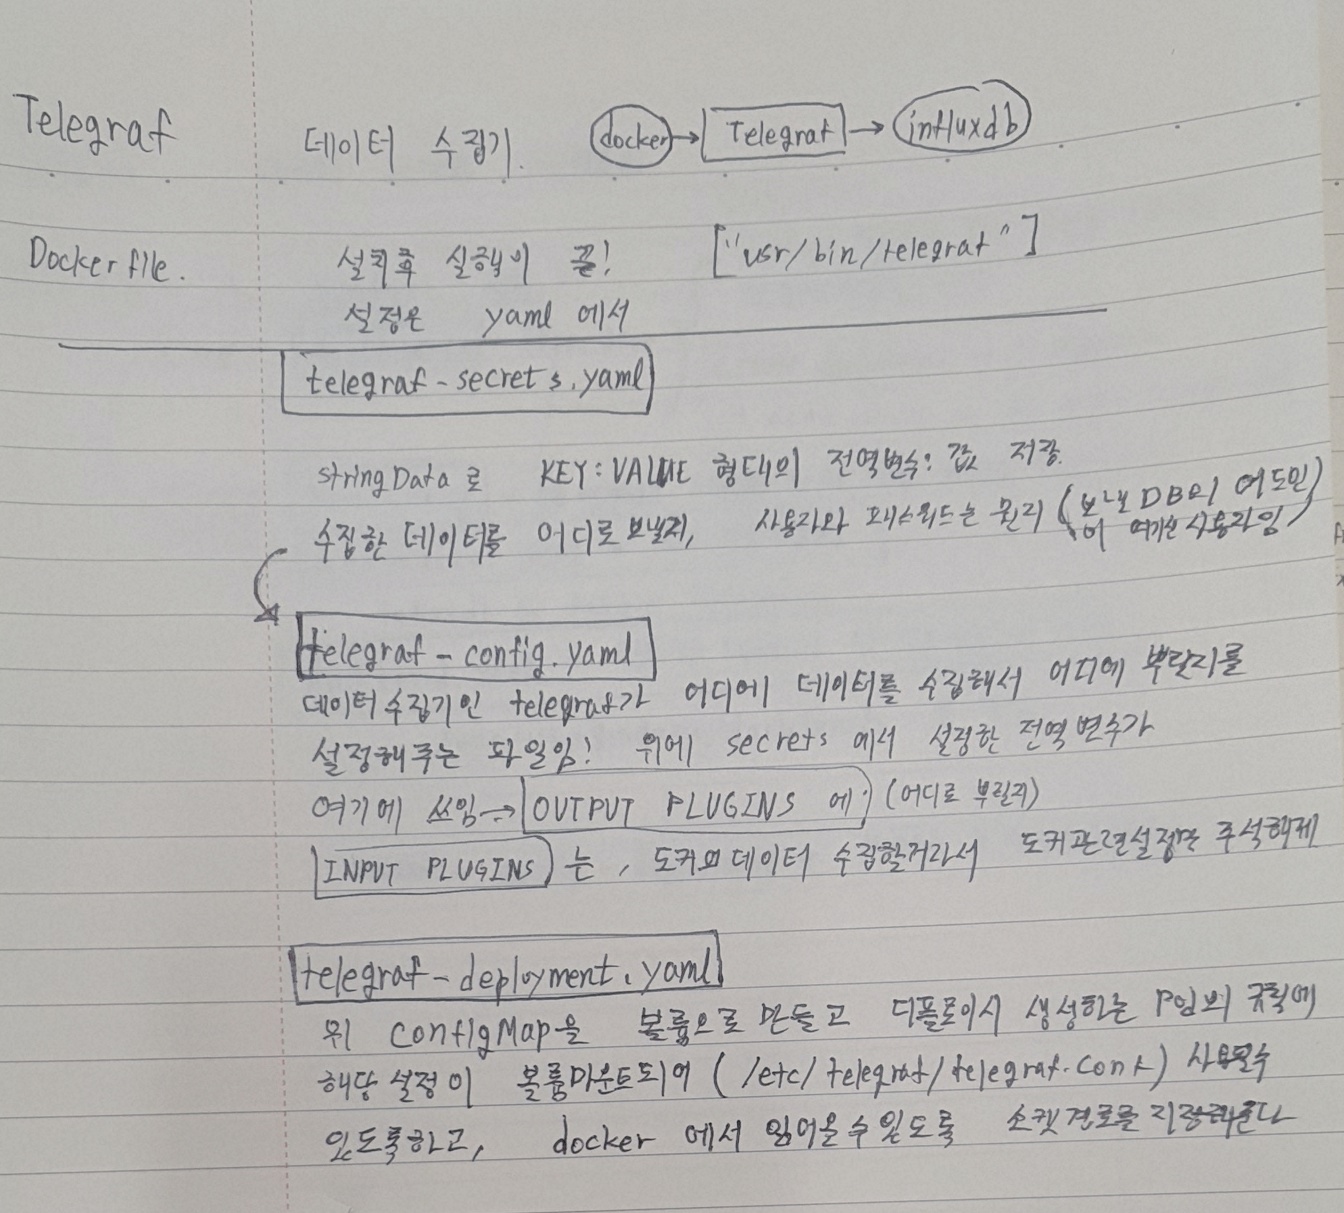 Telegraf 데이터 수집기. docker → Telegraf → influxdb
Dockerfile. 설치후 실행이 끝! ["usr/bin/telegraf"]
설정은 yaml 에서
telegraf-secrets.yaml
stringData로 KEY:VALUE 형태의 전역변수: 값 저장.
수집한 데이터를 어디로 보낼지, 사용자와 패스워드는 뭔지 (보낼 DB의 어드민
이 여기선 사용자임)
telegraf-config.yaml
데이터수집기인 telegraf가 어디에 데이터를 수집해서 어디에 뿌릴지를
설정해주는 파일임! 위에 secrets 에서 설정한 전역변수가
여기에 쓰임→ OUTPUT PLUGINS 에 (어디로 뿌릴지)
INPUT PLUGINS 는, 도커의 데이터 수집할거라서 도커관련설정만 주석해제
telegraf-deployment.yaml
위 configMap을 볼륨으로 만들고 디플로이시 생성하는 규칙에
해당 설정이 볼륨마운트되어 (/etc/telegraf/telegraf.conf) 사용될수
있도록하고, docker 에서 읽어올수있도록 소켓경로를 지정해준다